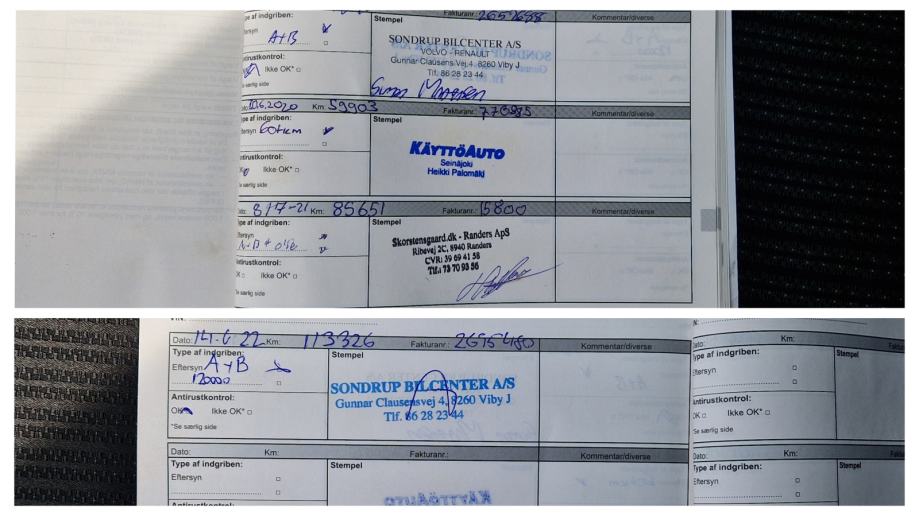 Type af indgriben:
Stempel
Fakturanr.: 2652688
Kommentar/diverse
Eftersyn
A+B
SONDRUP BILCENTER A/S
VOLVO - RENAULT
Gunnar Clausens Vej 4 · 8260 Viby J
Tlf. 86 28 23 44
Antirustkontrol:
Ikke OK* □
*Se særlig side
Dato: 10.6.2020 Km: 59903 Fakturanr.: 778985 Kommentar/diverse
Type af indgriben:
Stempel
Eftersyn 60tkm
KÄYTTÖAUTO
Seinäjoki
Heikki Palomäki
Antirustkontrol:
Ikke OK* □
*Se særlig side
Dato: 8/7-21 Km: 85651 Fakturanr.: 15800 Kommentar/diverse
Type af indgriben:
Stempel
Eftersyn
A+B + olie
Skorstensgaard.dk - Randers ApS
Ribevej 2C, 8940 Randers
CVR: 39 69 41 58
Tlf.: 73 70 93 56
Antirustkontrol:
OK □ Ikke OK* □
*Se særlig side
VIN:
Dato: 14.6 22 Km: 113326 Fakturanr.: 2695480 Kommentar/diverse
Type af indgriben:
Stempel
Eftersyn A+B
120000
SONDRUP BILCENTER A/S
Gunnar Clausensvej 4, 8260 Viby J
Tlf. 86 28 23 44
Antirustkontrol:
OK Ikke OK* □
*Se særlig side
Dato: Km: Fakturanr.: Kommentar/diverse
Type af indgriben:
Stempel
Eftersyn
Antirustkontrol:
N:
Dato: Km:
Type af indgriben:
Stempel
Eftersyn
Antirustkontrol:
OK □ Ikke OK* □
*Se særlig side
Dato: Km:
Type af indgriben:
Stempel
Eftersyn